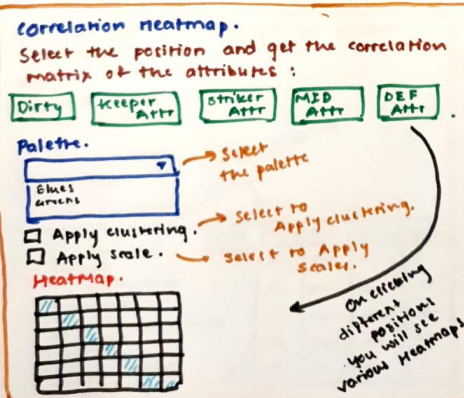 Correlation Heatmap.
Select the position and get the correlation
matrix of the attributes :
Dirty
Keeper Attr
Striker Attr
MID Attr
DEF Attr
Palette.
Select
the palette
Blues
Greens
Apply clustering.
Select to
Apply clustering.
Apply scale.
Select to Apply
Scales.
HeatMap.
On clicking
different
positions
you will see
various Heatmaps